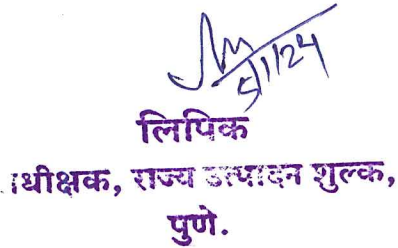 5/1/24
लिपिक
अधीक्षक, राज्य उत्पादन शुल्क,
पुणे.